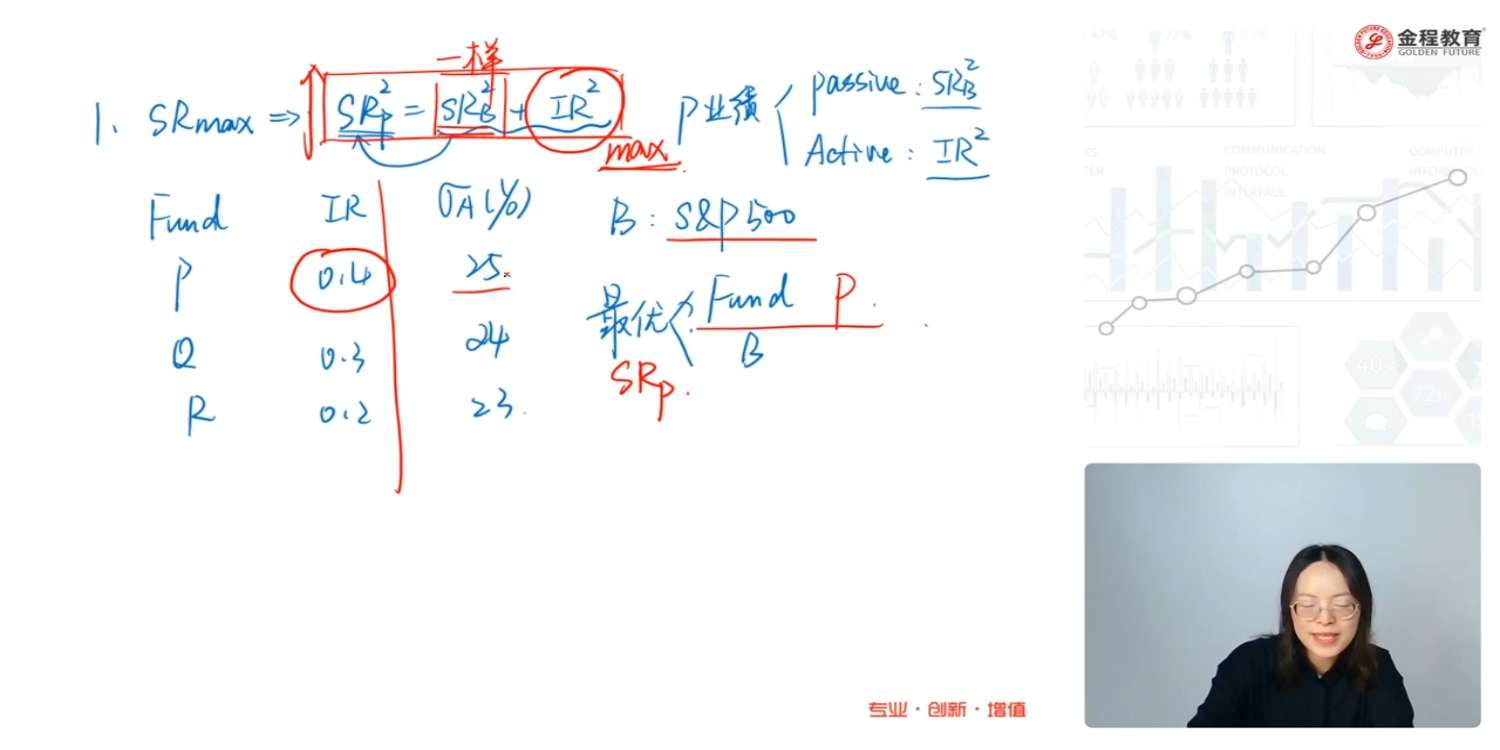 一样
1. SRmax ⇒ SRp² = SRB² + IR²
max
P业绩
passive: SRB²
Active: IR²
Fund IR σA(%)
P 0.4 25
Q 0.3 24
R 0.2 23
B: S&P500
最优
Fund P.
B
SRp.
金程教育
GOLDEN FUTURE
COMMUNICATION
PROTOCOL
INTERFACE
专业·创新·增值